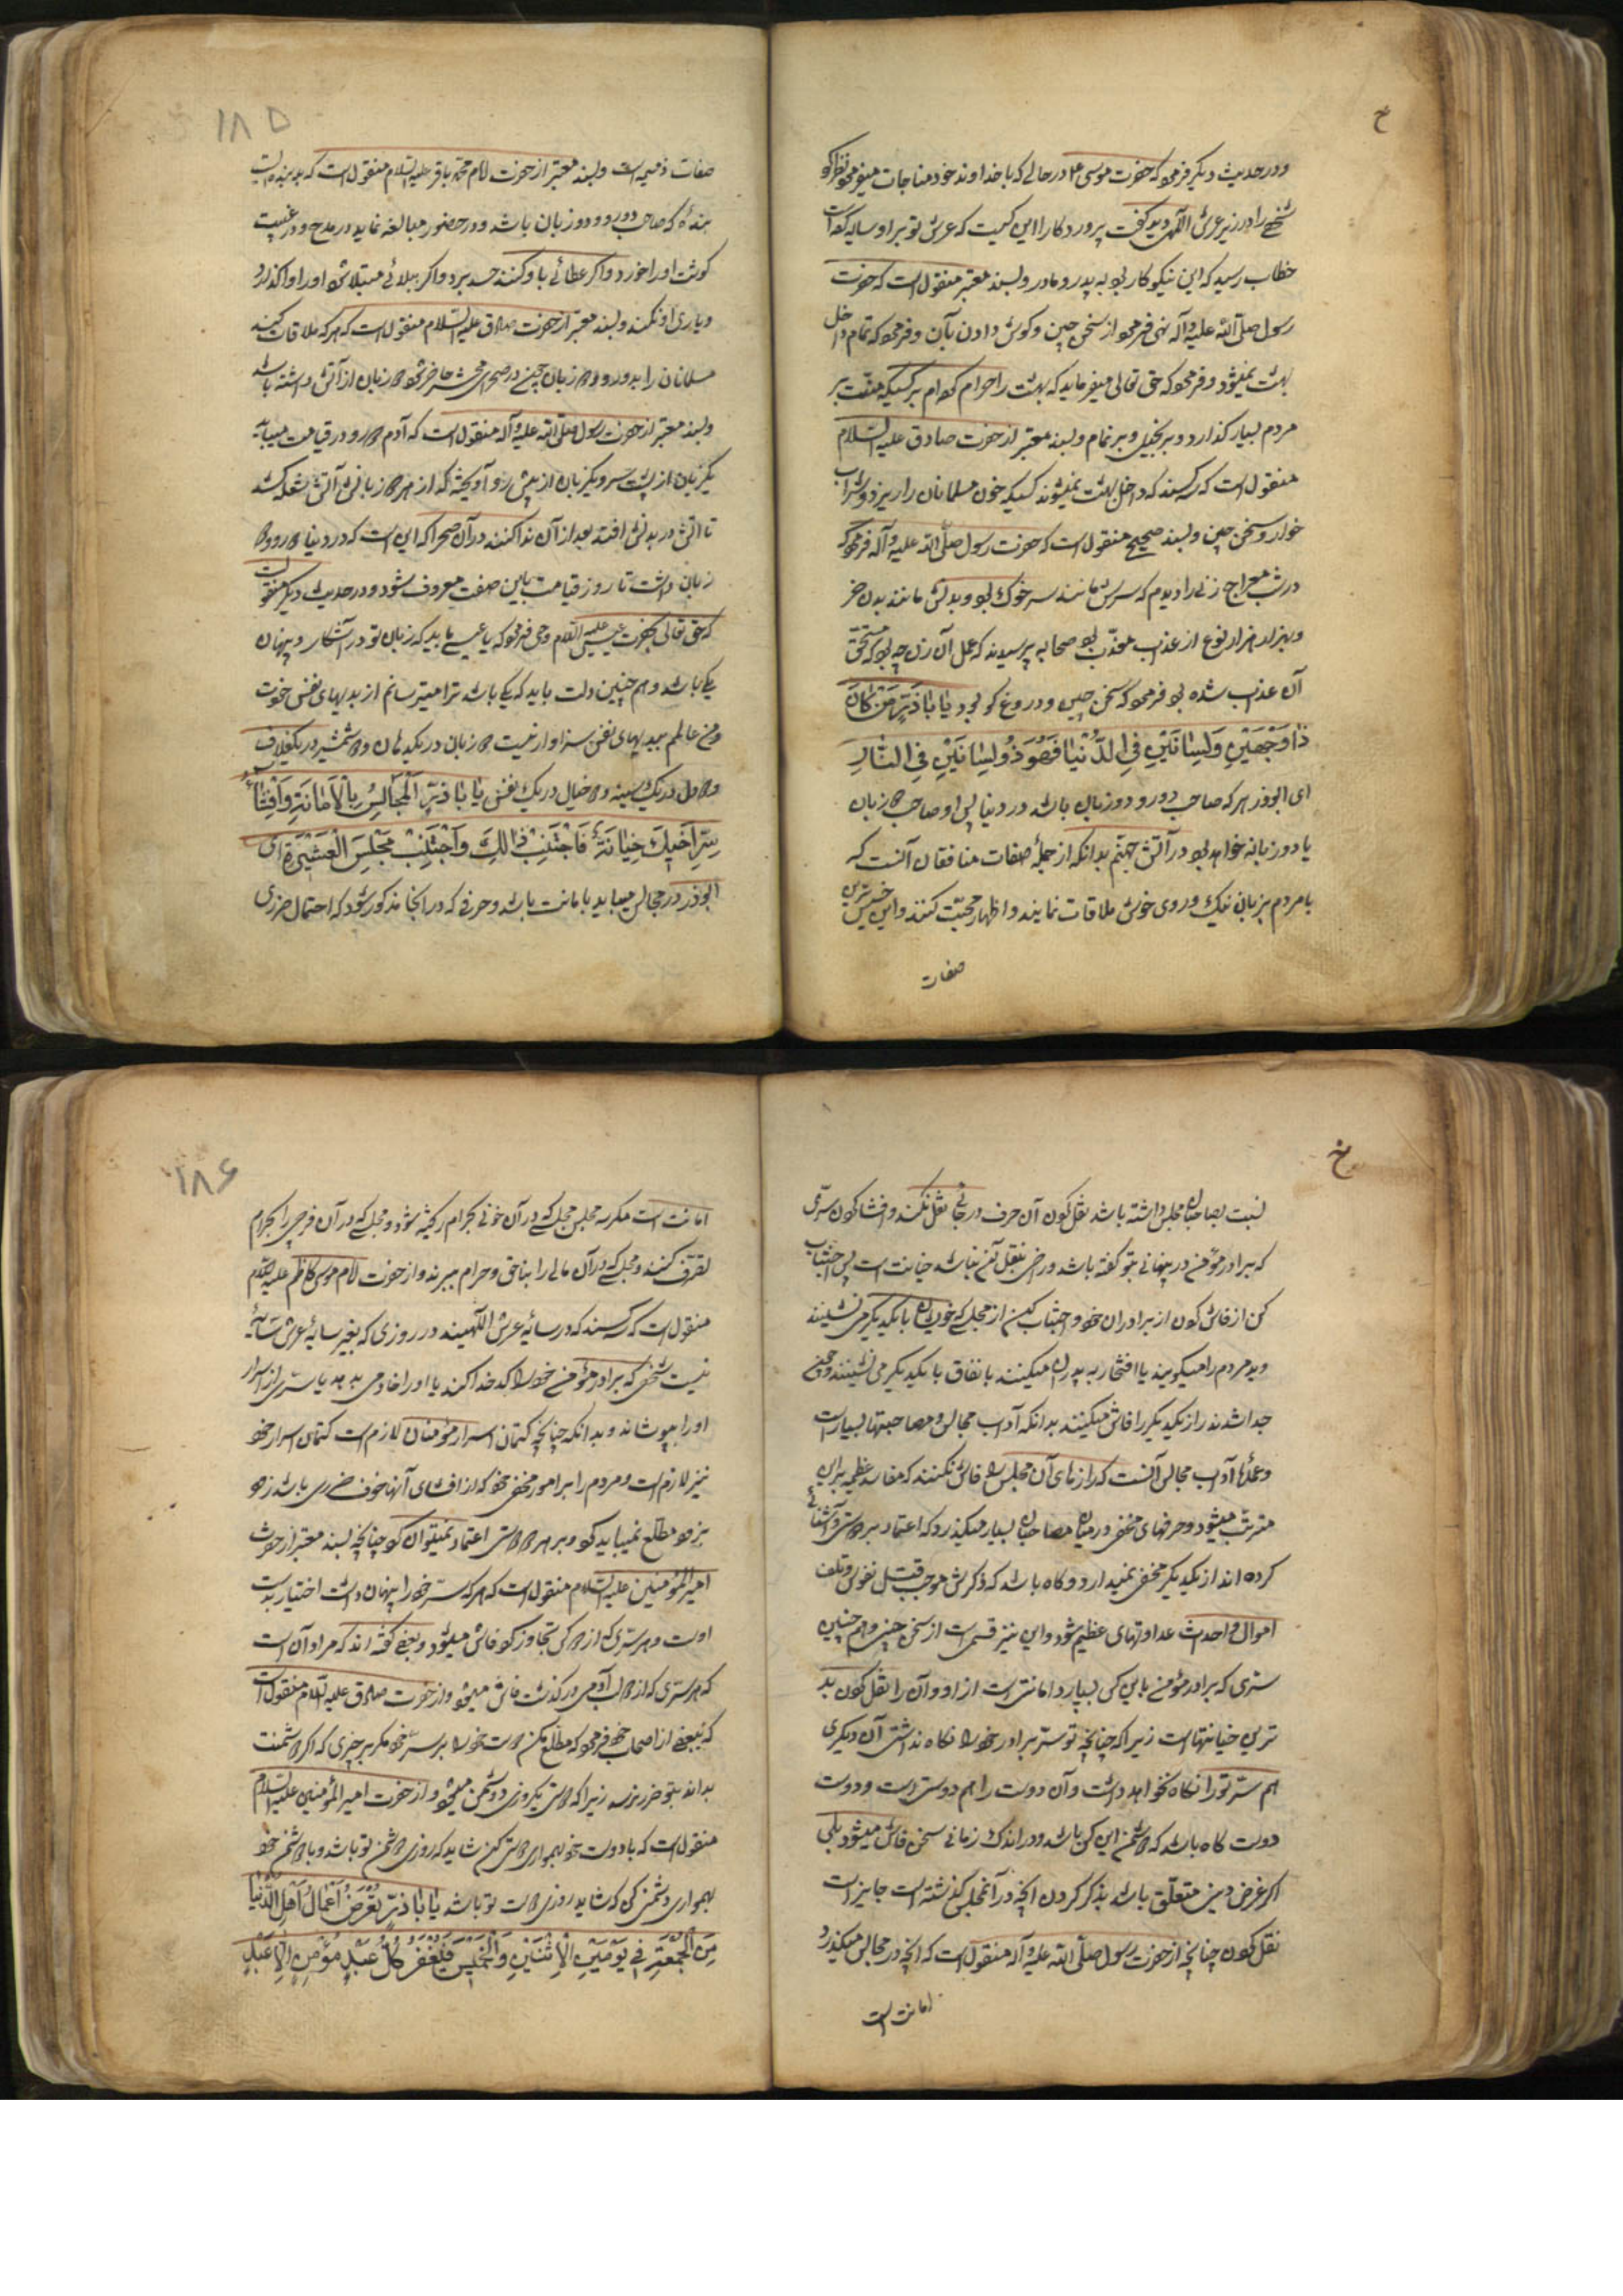 و در حدیث دیگر فرمود که حضرت موسی ع در حالے که با خداوند خود مناجات میفرمود نظر او
شخصے را در زیر عرش الٓهی دید گفت پروردکارا این کیست که عرش تو بر او سایه کرده است
خطاب رسید که این نیکوکار بود به پدر و مادر و بسند معتبر منقول است که حضرت
رسول صلی اللّه علیه و آله نهی فرمود از سخن چینی و کوش دادن بآن و فرمود که نمام داخل
بهشت نمیشود و فرمود که حق تعالی میفرماید که بهشت را حرام کرده ام بر کسیکه منت بر
مردم بسیار کذارد و بر بخیل و بر نمام و بسند معتبر از حضرت صادق علیه السّلام
منقول است که سه کسند که داخل بهشت نمیشوند کسیکه خون مسلمانان را ریزد و شراب
خوار و سخن چین و بسند صحیح منقول است که حضرت رسول صلّی اللّه علیه و آله فرمود که
در شب معراج زنے را دیدم که سرش مانند سر خوک بود و بدنش مانند بدن خر
و بهزار هزار نوع از عذاب معذّب بود صحابه پرسیدند که عمل آن زن چه بود که مستحقّ
آن عذاب شده بود فرمود که سخن چین و دروغ کو بود یٰا اَبٰاذَرٍّ مَنْ کٰانَ
ذٰا وَجْهَیْنِ وَ لِسٰانَیْنِ فِی الدُّنْیٰا فَهُوَ ذُو لِسٰانَیْنِ فِی النّٰارِ
ای ابوذر هر که صاحب دو رو و دو زبان باشد در دنیا پس او صاحب دو زبان
یا دو زبانه خواهد بود در آتش جهنّم بدانکه از جملهٔ صفات منافقان آنست که
با مردم بزبان نیک و روی خوش ملاقات نمایند و اظهار محبّت کنند و این خسیس ترین
صفات
۱۸۵
صفات ذمیمه است و بسند معتبر از حضرت امام محمّد باقر علیه السّلام منقول است که بد بنده ایست
بندهٔ که صاحب دو رو و دو زبان باشد و در حضور مبالغه نماید در مدح و در غیبت
کوشت او را خورد و اکر عطائے باو کنند حسد برد و اکر ببلائے مبتلا شود او را واکذارد
و یاری او نکند و بسند معتبر از حضرت صادق علیه السّلام منقول است که هر که ملاقات کند
مسلمانان را بدو رو و دو زبان چون در صحرای محشر حاضر شود دو زبان از آتش داشته باشد
و بسند معتبر از حضرت رسول صلی اللّه علیه و آله منقول است که آدم دو رو در قیامت میاید
یکزبان از پشت سر و یکزبان از پیش رو آویخته که از هر دو زبانش آتش شعله کشد
تا آتش در بدنش افتد بعد از آن ندا کنند در آن صحرا که این است که در دنیا دو رو و دو
زبان داشت تا روز قیامت باین صفت معروف شود و در حدیث دیکر منقول است
که حق تعالی بحضرت عیسی علیه السّلام وحی فرمود که یا عیسے باید که زبان تو در آشکار و پنهان
یکے باشد و هم چنین دلت باید که یکے باشد ترا میترسانم از بدیهای نفس خودت
و من عالمم ببدیهای نفس سزاوار نیست دو زبان در یکدهان و دو شمشیر در یکغلاف
و دو دل در یک سینه و دو خیال در یک نفس یٰا اَبٰاذَرٍّ اَلْمَجٰالِسُ بِالْاَمٰانَةِ وَ اِفْشٰاءُ
سِرِّ اَخیٖکَ خِیٰانَةٌ فَاجْتَنِبْ ذٰلِکَ وَ اجْتَنِبْ مَجْلِسَ الْعَشیٖرَةِ ای
ابوذر در مجالس میباید بامانت باشد و حرفی که در آنجا مذکور شود که احتمال ضرری
نسبت بصاحبان مجلس داشته باشد نقل کردن آن حرف در جائے نقل نکنند و افشا کردن سرّی
که برادر مؤمن در پنهانے بتو کفته باشد و راضی بنقل آن نباشد خیانت است پس اجتناب
کن از فاش کردن راز برادران خود و اجتناب کن از مجلسے که خویشان با یکدیکر می نشینند
و بد مردم را میکویند یا افتخار به پدران میکنند بانفاق با یکدیکر می نشینند و چون
جدا شدند راز یکدیکر را فاش میکنند بدانکه آداب مجالس و مصاحبتها بسیار است
و عمدهٔ آداب مجالس آنست که رازهای آن مجلس را فاش نکنند که مفاسد عظیمه بر آن
مترتب میشود و حرفهای مخفی در میان مصاحبان بسیار میکذرد که اعتماد بر دوستی و آشنائی
کرده اند از یکدیکر مخفی نمیدارد و کاه باشد که ذکرش موجب قتل نفوس و تلف
اموال و احداث عداوتهای عظیم شود و این نیز قسمی است از سخن چینی و هم چنین
سرّی که برادر مؤمن باین کس بسپارد امانتی است از او و آن را نقل کردن بد
ترین خیانتها است زیرا که چنانچه تو سرّ برادر خود را نکاه نداشتی آن دیکری
هم سرّ تو را نکاه نخواهد داشت و آن دوست را هم دوستی است و دوست
دوست کاه باشد که دشمن این کس باشد و در اندک زمانی سخن فاش میشود بلی
اکر غرض دینی متعلّق باشد بذکر کردن آنچه در آنمجلس کذشته است جایز است
نقل کردن چنانچه از حضرت رسول صلّی اللّه علیه و آله منقول است که آنچه در مجالس میکذرد
امانت است
۱۸۶
امانت است مکر سه مجلس مجلسے که در آن خونے بحرام ریخته شود و مجلسے که در آن فرجی را بحرام
تصرّف کنند و مجلسے که در آن مالے را بناحق و حرام میبرند و از حضرت امام موسی کاظم علیه السّلام
منقول است که سه کسند که در سایهٔ عرش الٓهیند در روزی که بغیر سایهٔ عرش سایهٔ
نیست شخصی که برادر مؤمن خود را کدخدا کند یا او را خادمی بدهد یا سرّی از اسرار
او را بپوشاند و بدانکه چنانچه کتمان اسرار مؤمنان لازم است کتمان اسرار خود
نیز لازم است و مردم را بر امور مخفی خود که از افشای آنها خوف ضرری باشد زود
بزود مطلع نمیباید کرد و بر هر دوستی اعتماد نمیتوان کرد چنانچه بسند معتبر از حضرت
امیر المؤمنین علیه السّلام منقول است که هر که سرّ خود را پنهان داشت اختیار بدست
اوست و هر سرّی که از دو کس تجاوز کرد فاش میشود و بعضے کفته اند که مراد آن است
که هر سرّی که از دو لب آدمی در کذشت فاش میشود و از حضرت صادق علیه السّلام منقول است
که ببعضے از اصحاب خود فرمود که مطلع مکن دوست خود را بر سرّ خود مکر بر چیزی که اکر دشمنت
بداند بتو ضرر نرسد زیرا که دوست یکروزی دشمن میشود و از حضرت امیر المؤمنین علیه السّلام
منقول است که با دوست خود بهمواری دوستی کن شاید که روزی دشمن تو باشد و با دشمن خود
بهمواری دشمنی کن که شاید روزی دوست تو باشد یٰا اَبٰاذَرٍّ تُعْرَضُ اَعْمٰالُ اَهْلِ الدُّنْیٰا
مِنَ الْجُمُعَةِ فِی یَوْمَیْنِ الْاِثْنَیْنِ وَ الْخَمیٖسِ فَیُغْفَرُ لِکُلِّ عَبْدٍ مُؤْمِنٍ اِلّٰا عَبْدٍ